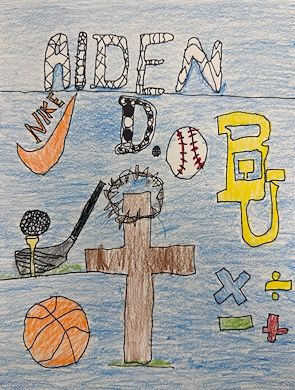 AIDEN
NIKE
D.
BU
× ÷
− +